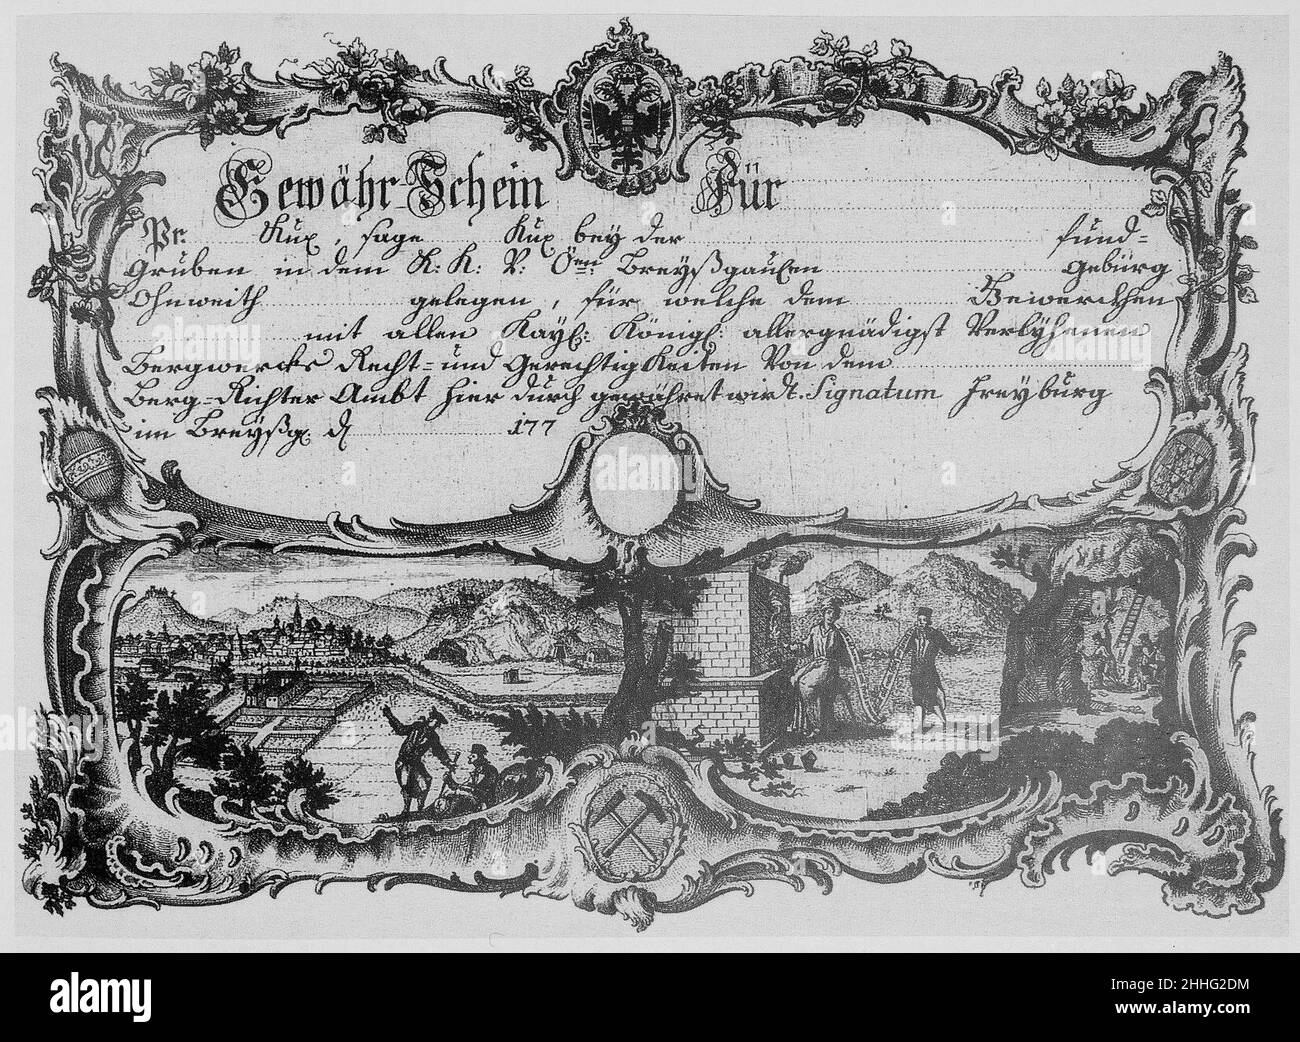 Gewähr-Schein Für
Pr. Kux, sage Kux bey der fund-
Gruben in dem K: K: V: Öen: Breyßgauen Gebürg
Ohnweith gelegen, für welche dem Beiwerckhen
mit allen Kayl: Königl: allergnädigst Verlyhenen
Bergwercks Recht- und Gerechtigkeiten Von dem
Berg-Richter Ambt hier durch gewähret wirdt. Signatum Freyburg
im Breyßg. d 177
alamy
Image ID: 2HHG2DM
www.alamy.com